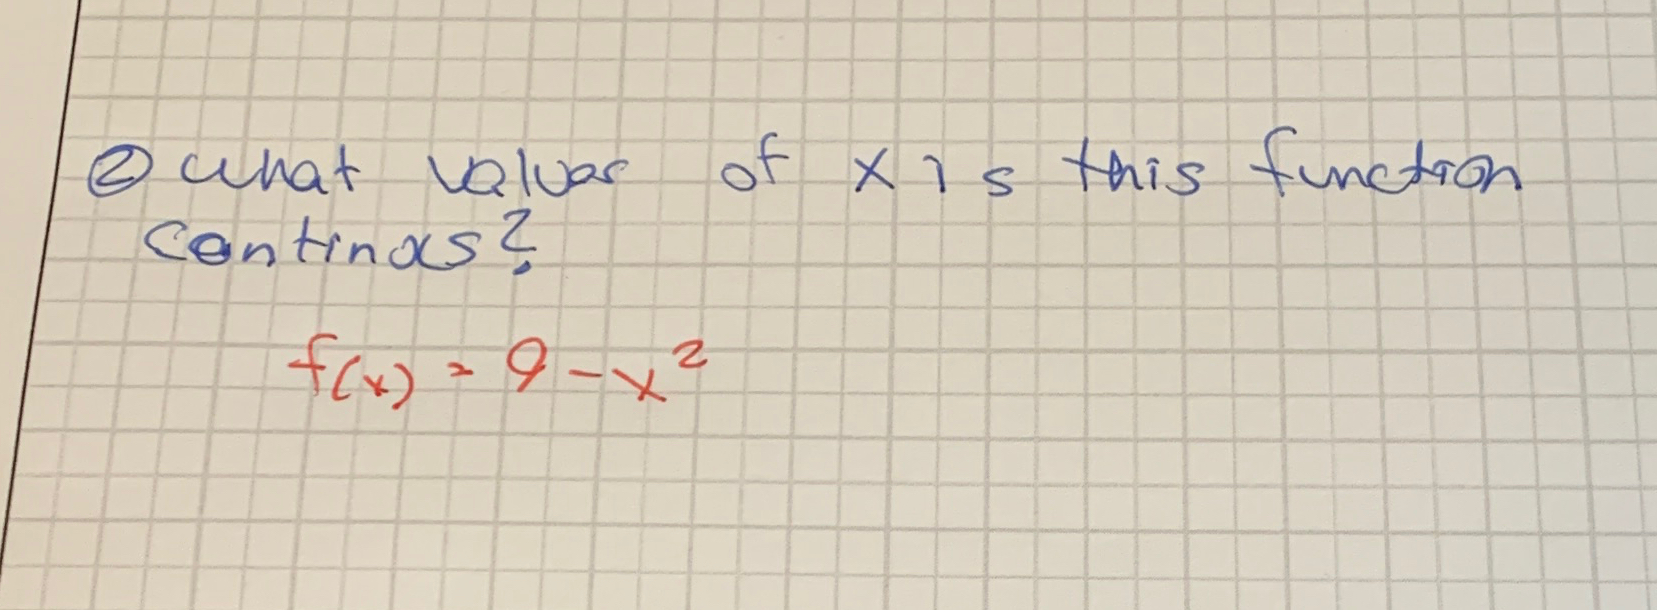 ② what values of x is this function
continos?
f(x) = 9 - x²